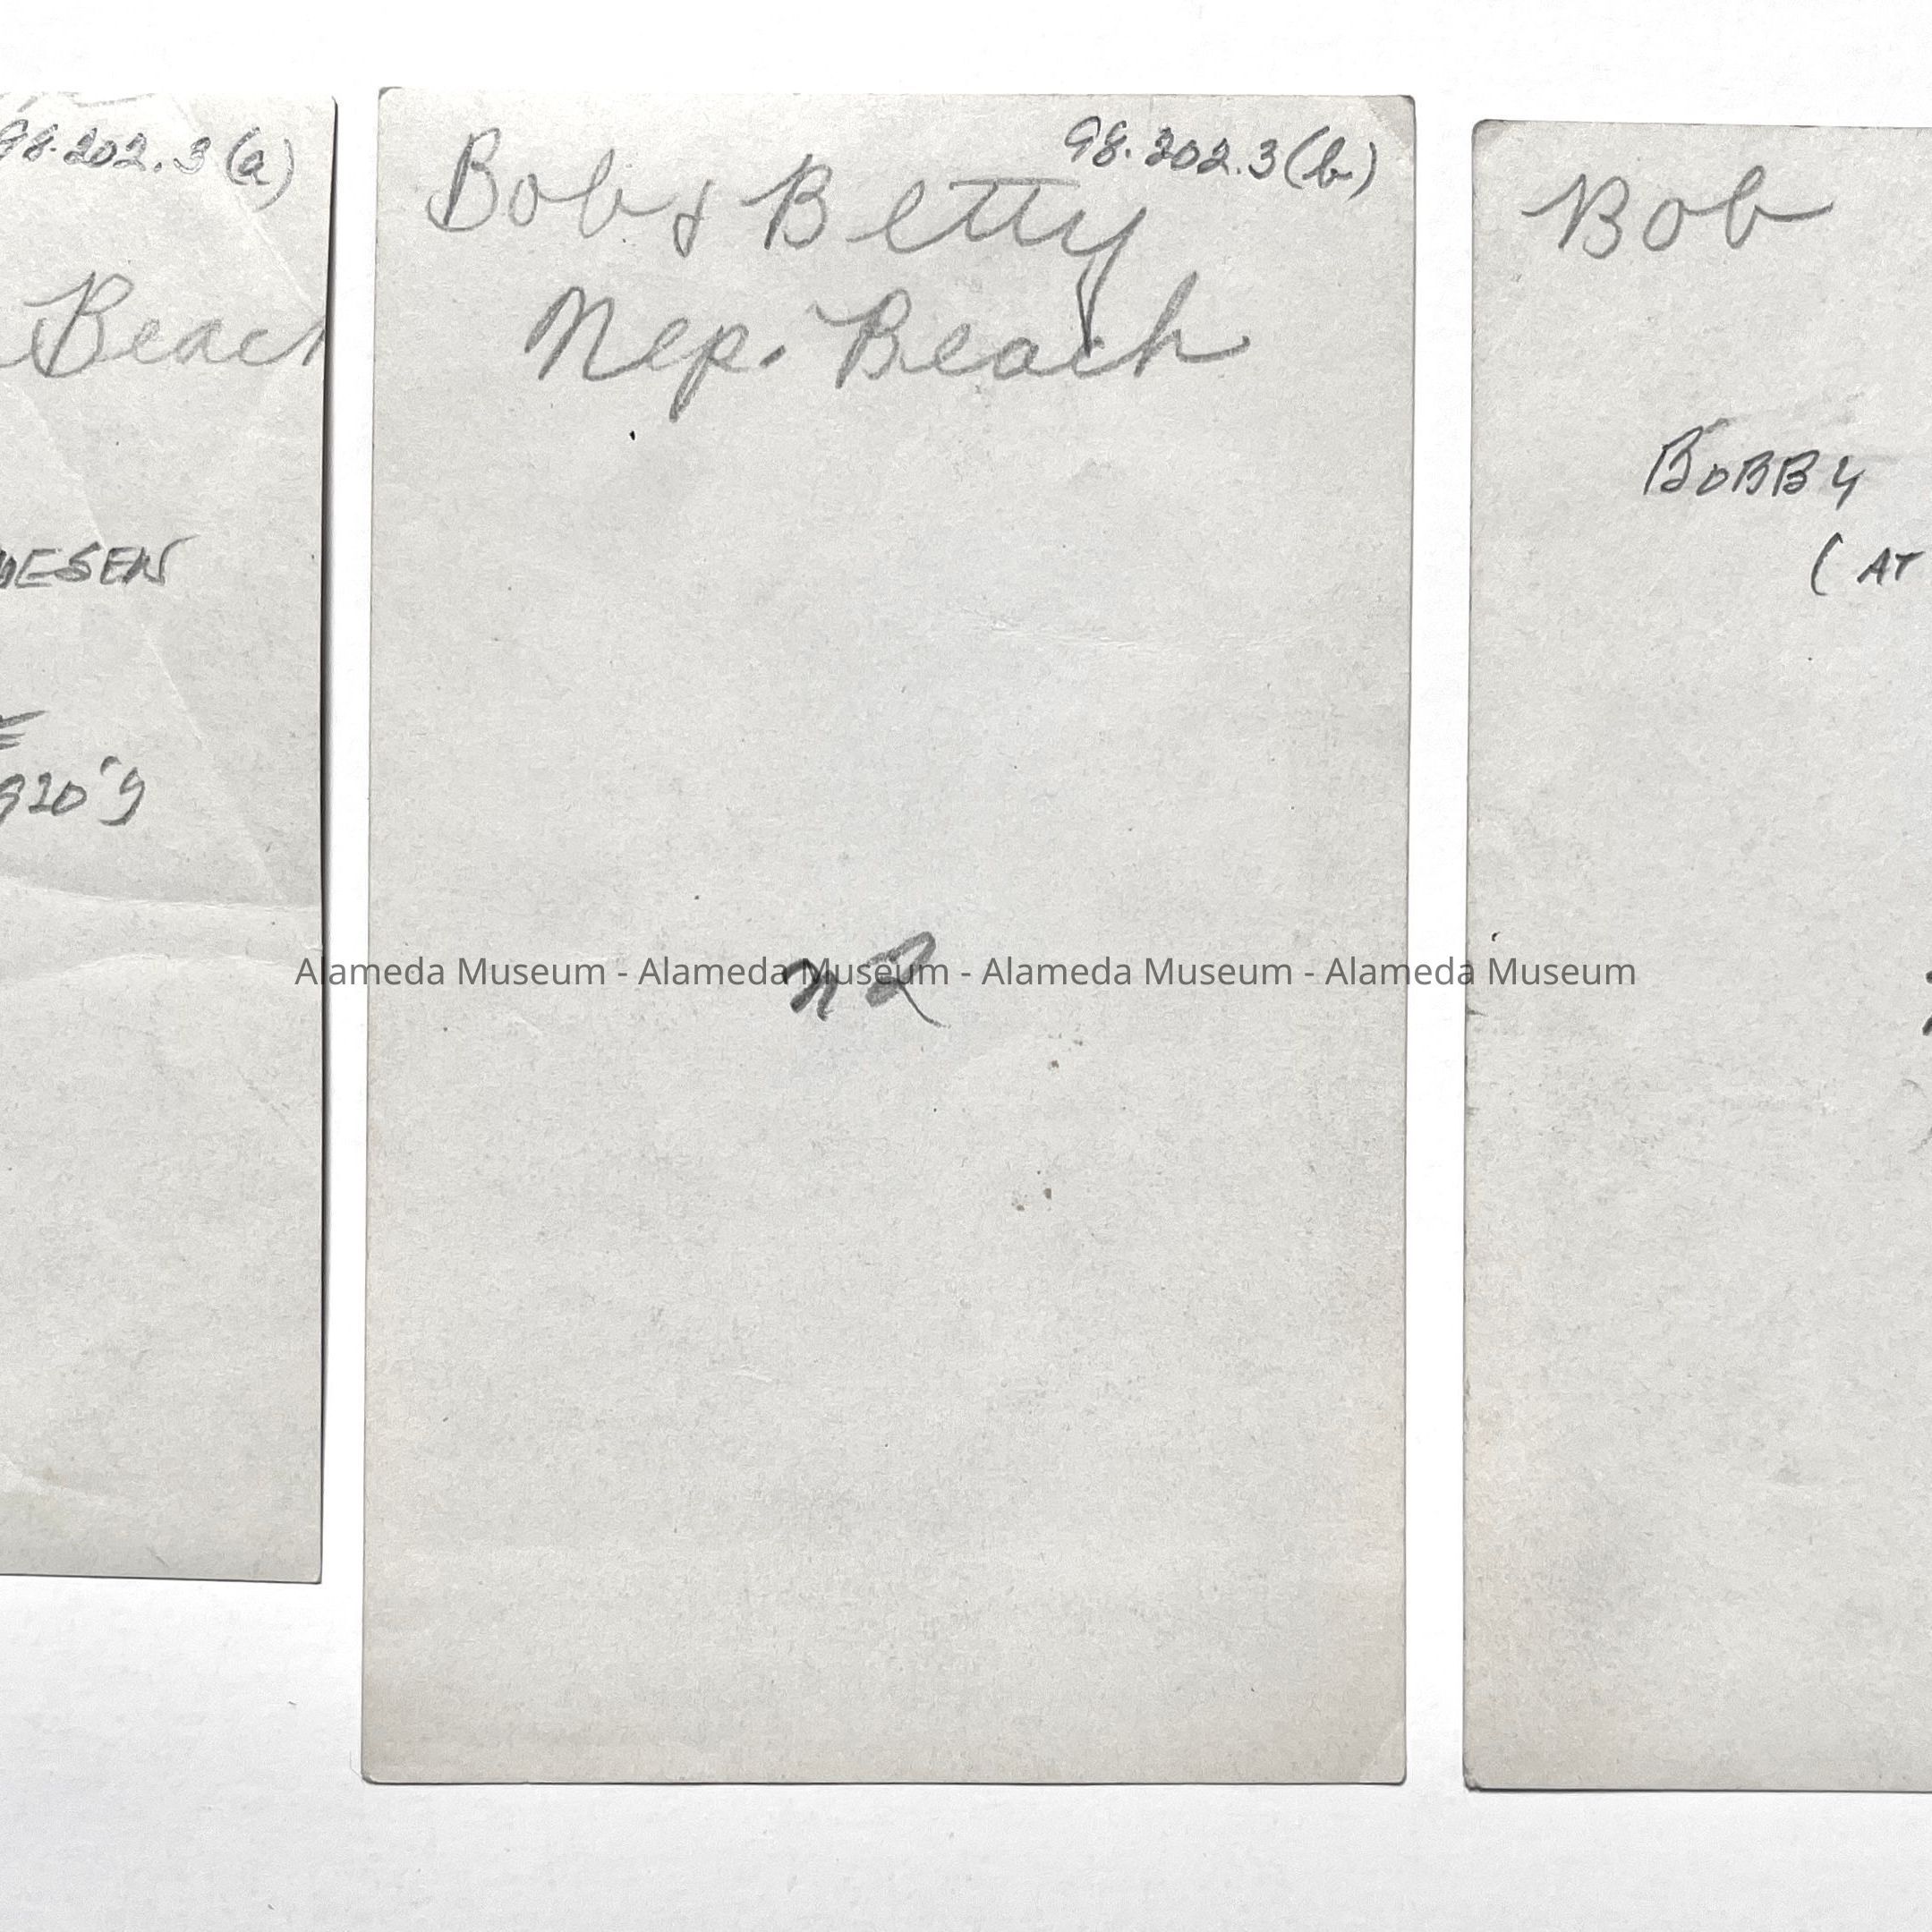 98.202.3(a)
Beach
ESEN
920's
98.202.3(b)
Bob & Betty
Nep. Beach
n2
Bob
BOBBY
(AT
Alameda Museum - Alameda Museum - Alameda Museum - Alameda Museum